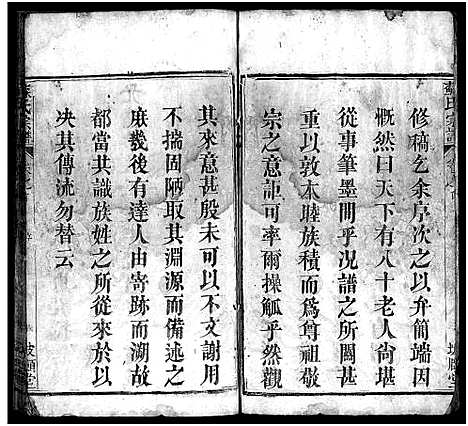 修稿乞余序次之以弁簡端因
慨然曰天下有八十老人尚堪
從事筆墨間乎况譜之所關甚
重以敦本睦族積而為尊祖敬
宗之意詎可率爾操觚乎然觀
其來意甚殷未可以不文謝用
不揣固陋取其淵源而備述之
庶幾後有達人由寄跡而溯故
都當共識族姓之所從來於以
决其傳流勿替云